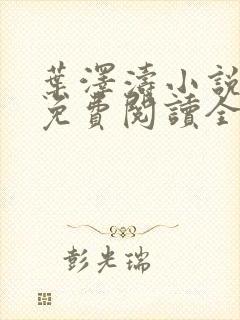 葉澤濤小說
免費閱讀全
彭光瑞